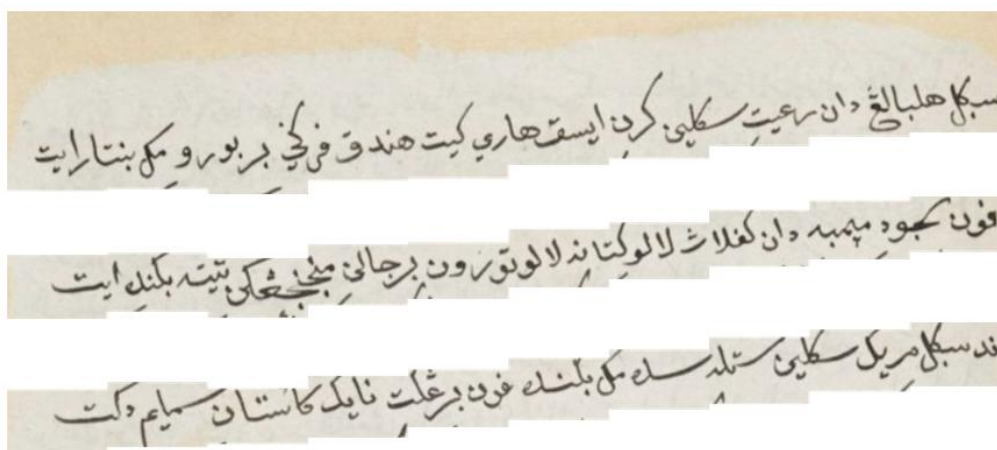 سݢل هلبالڠ دان رعيت سكلين كرن ايسق هاري كيت هندق فرݢي بربورو مك بنتارايت
فون سجود مڽمبه دان كفلاڽ لالو كتانه لالو تورون برجالن منجنجڠكن تيته بݢند ايت
سݢل مريك سكلين ستله سده مك بݢند فون برڠكت نايك كاستان سمايم دكت